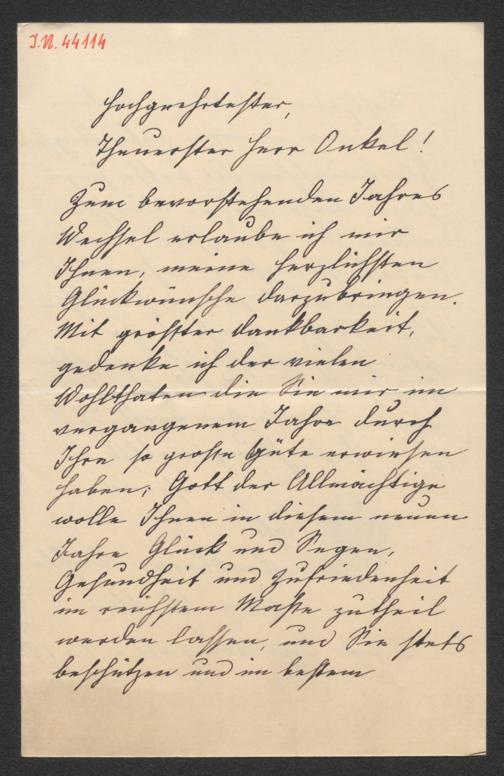 J.N. 44114
Hochgeehrtester,
Theuerster Herr Onkel!
Zum bevorstehenden Jahres
Wechsel erlaube ich mir
Ihnen, meine herzlichsten
Glückwünsche darzubringen.
Mit grösster Dankbarkeit,
gedenke ich der vielen
Wohlthaten die Sie mir im
vergangenem Jahre durch
Ihre so grosse Güte erwiesen
haben; Gott der Allmächtige
wolle Ihnen in diesem neuen
Jahre Glück und Segen,
Gesundheit und Zufriedenheit
im reichstem Maße zutheil
werden lassen, und Sie stets
beschützen und im bestem